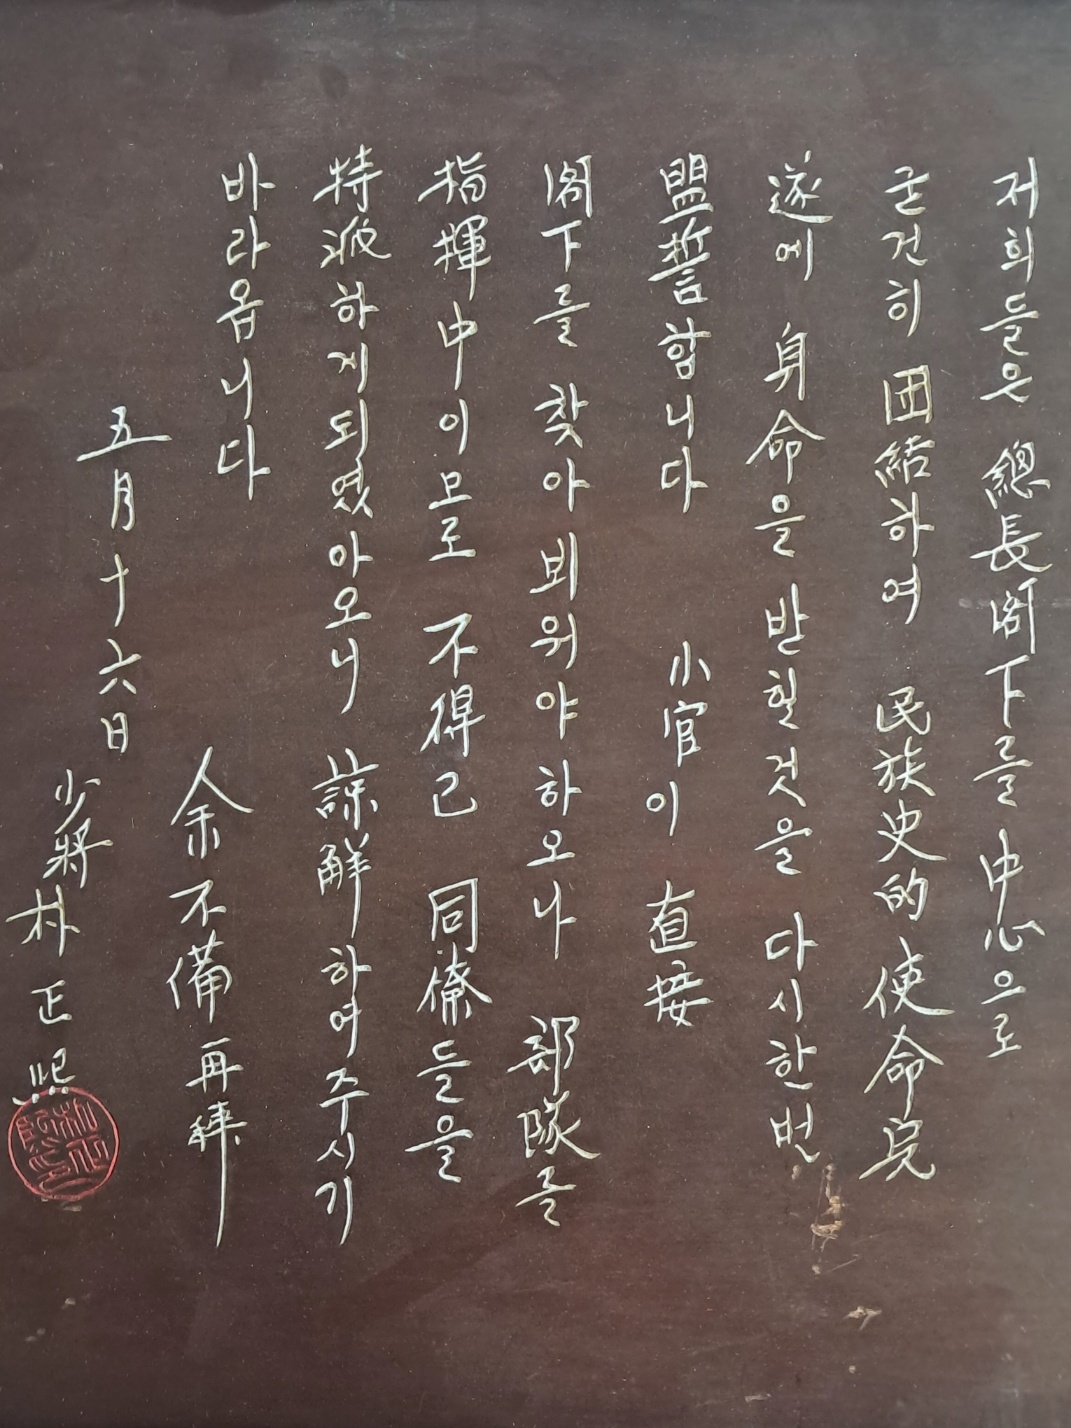 저희들은 總長閣下를 中心으로
굳건히 团結하여 民族史的 使命完
遂에 身命을 반칠것을 다시한번
盟誓합니다 小官이 直接
閣下를 찾아 뵈워야하오나 部隊를
指揮中이므로 不得已 同僚들을
特派하게되였아오니 諒解하여주시기
바라옵니다
余不備再拜
五月十六日
少將 朴正熙